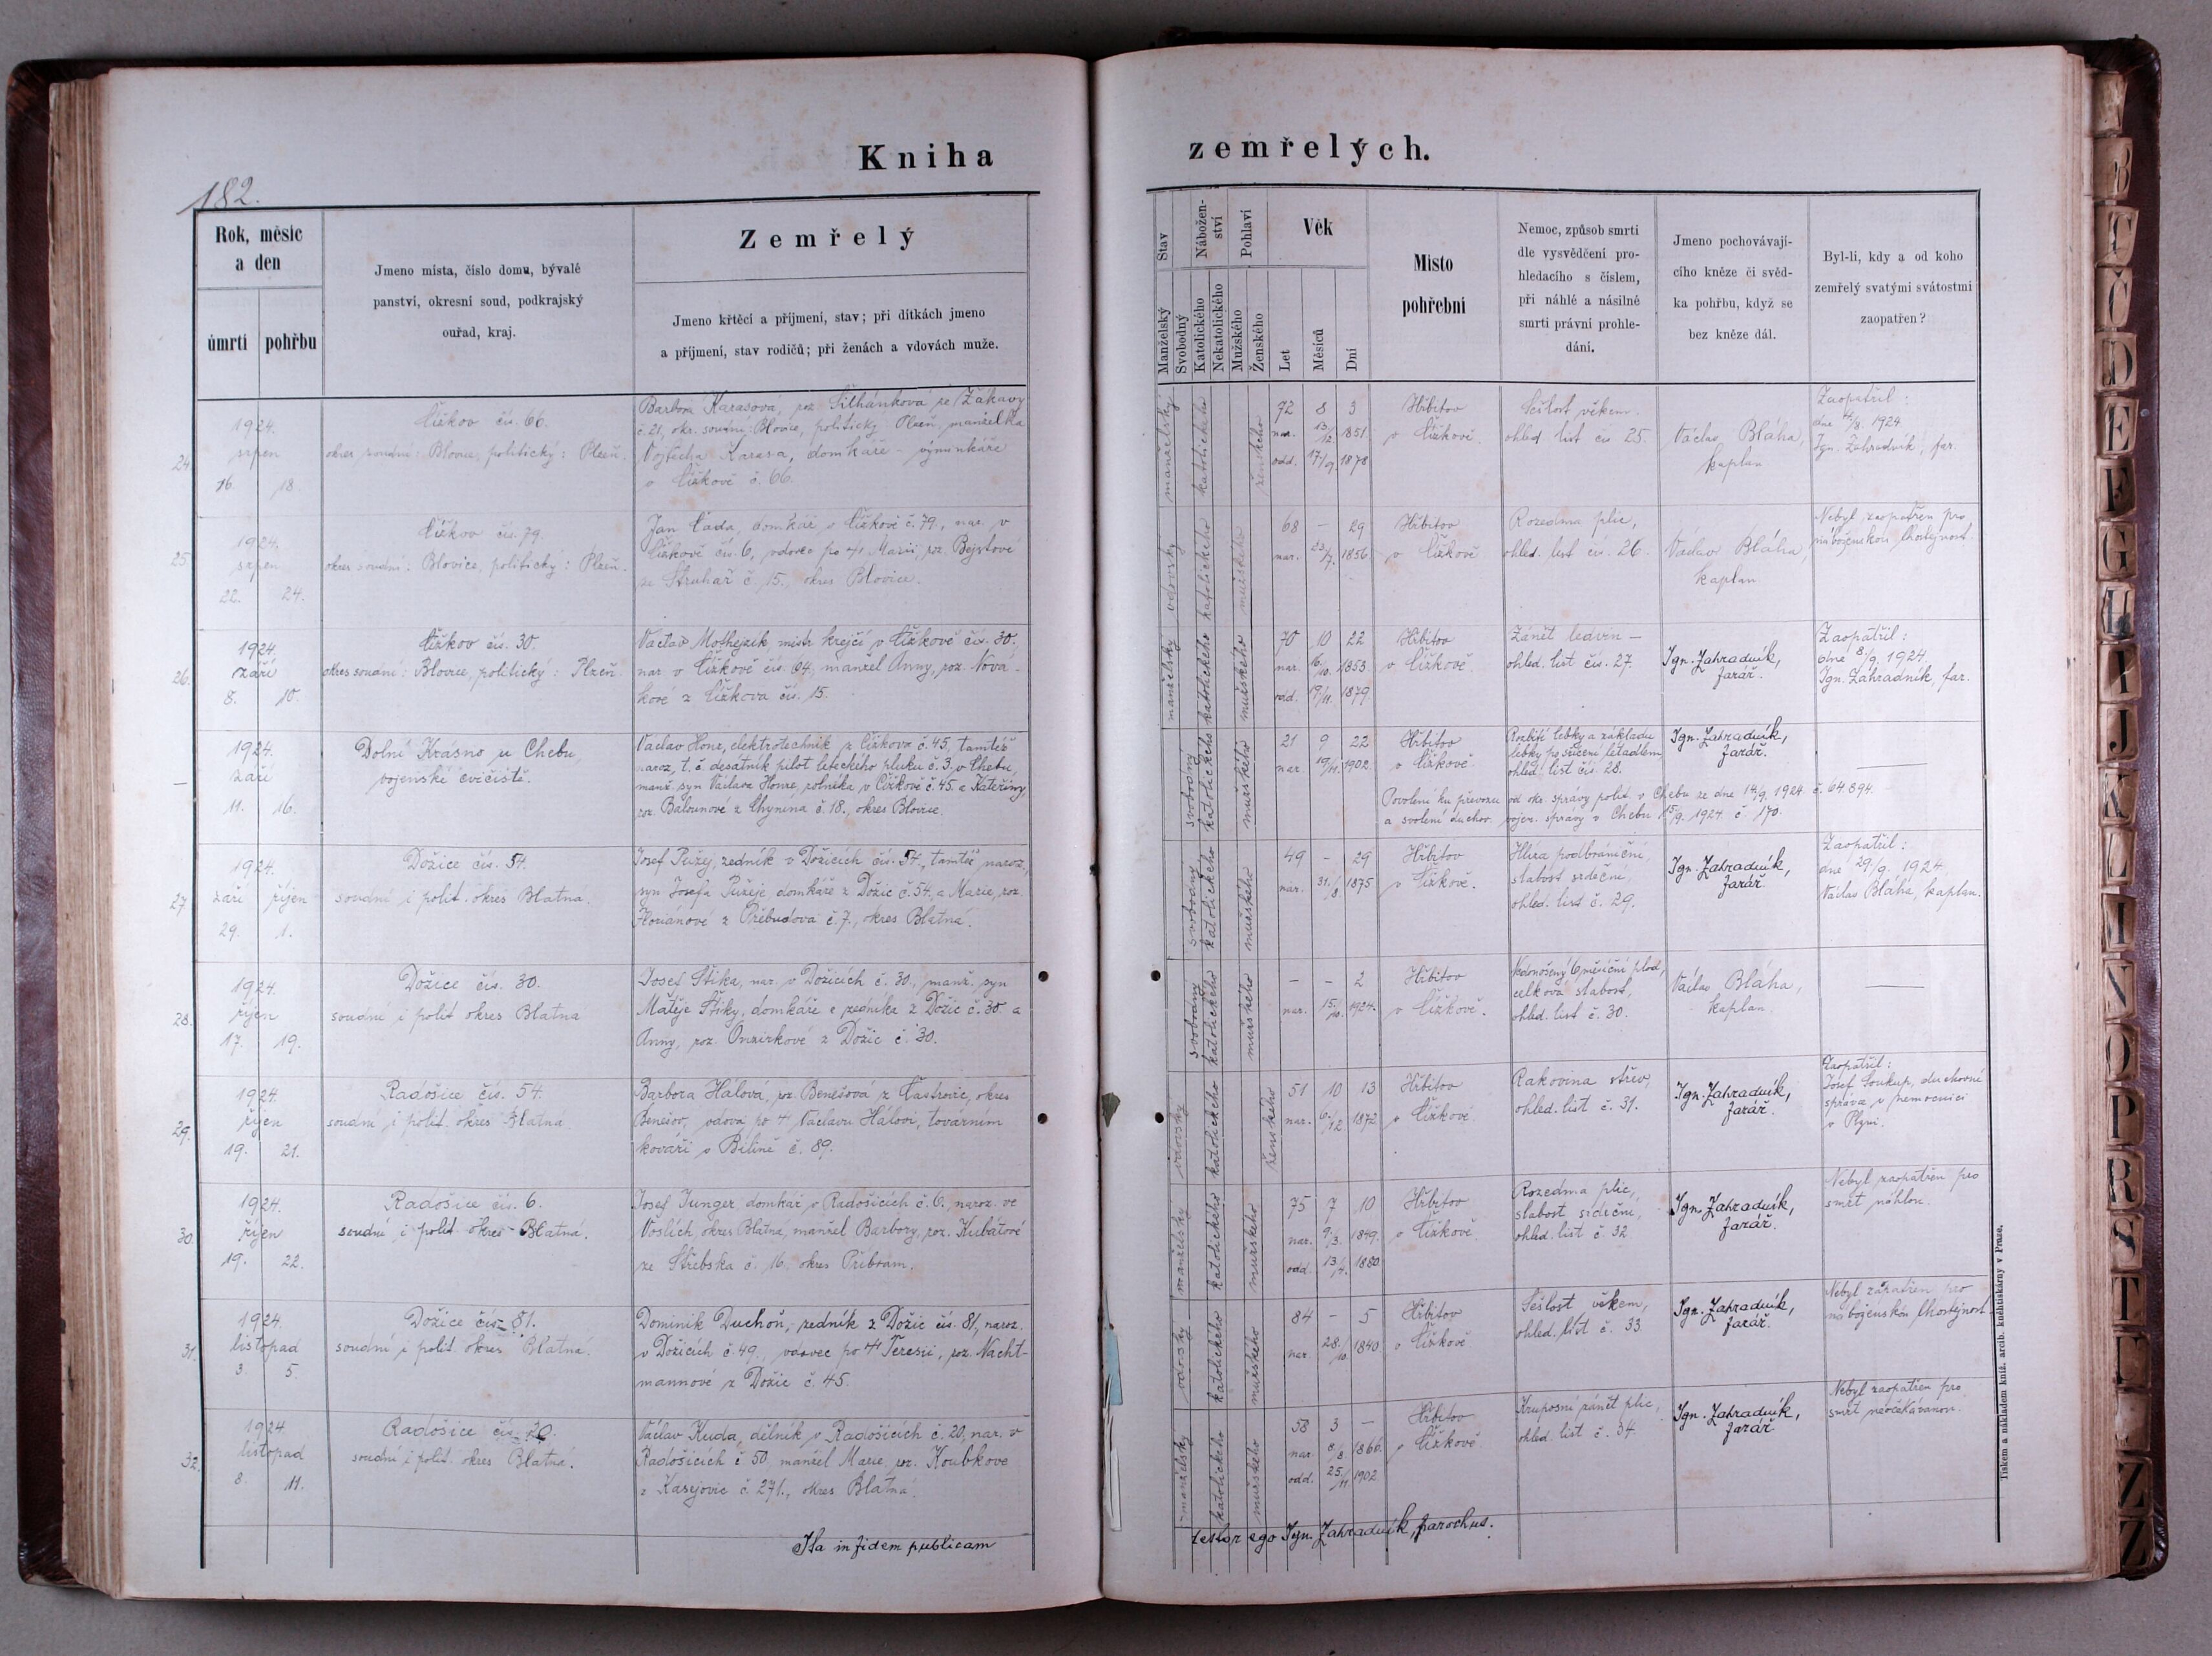 Kniha
zemřelých.
182.
Rok, měsíc
a den
úmrtí
pohřbu
Jmeno místa, číslo domu, bývalé
panství, okresní soud, podkrajský
ouřad, kraj.
Zemřelý
Jmeno křtěcí a příjmení, stav; při dítkách jmeno
a příjmení, stav rodičů; při ženách a vdovách muže.
Stav
Manželský
Svobodný
Nábožen-
ství
Katolického
Nekatolického
Pohlaví
Mužského
Ženského
Věk
Let
Měsíců
Dní
Místo
pohřební
Nemoc, způsob smrti
dle vysvědčení pro-
hledacího s číslem,
při náhlé a násilné
smrti právní prohle-
dání.
Jmeno pochovávají-
cího kněze či svěd-
ka pohřbu, když se
bez kněze dál.
Byl-li, kdy a od koho
zemřelý svatými svátostmi
zaopatřen?
24.
1924.
srpen
16. 18.
Čížkov čís. 66.
okres soudní: Blovice, politický: Plzeň.
Barbora Karasová, roz. Šilhánková ze Žákavy
č. 21, okr. soudní: Blovice, politický: Plzeň, manželka
Vojtěcha Karasa, domkáře - výminkáře
v Čížkově č. 66.
manželský
katolického
ženského
72 8 3
nar. 13/12 1851
odd. 17/9 1878
Hřbitov
v Čížkově.
Sešlost věkem.
ohled. list čís 25.
Václav Bláha,
kaplan
Zaopatřil:
dne 14/8. 1924
Ign. Zahradník, far.
25.
1924.
srpen
22. 24.
Čížkov čís. 79.
okres soudní: Blovice, politický: Plzeň.
Jan Čada, domkář v Čížkově č. 79., nar. v
Čížkově čís. 6, vdovec po † Marii, roz. Bejstové
ze Struhař č. 15., okres Blovice.
vdovský
katolického
mužského
68 - 29
nar. 23/7. 1856
Hřbitov
v Čížkově
Rozedma plic,
ohled. list čís. 26.
Václav Bláha,
kaplan.
Nebyl zaopatřen pro
náboženskou lhostejnost.
26.
1924.
září
8. 10.
Čížkov čís. 30.
okres soudní: Blovice, politický: Plzeň.
Václav Mothejzík mistr krejčí v Čížkově čís. 30.
nar v Čížkově čís. 64, manžel Anny, roz. Nová-
kové z Čížkova čís. 15.
manželský
katolického
mužského
70 10 22
nar. 16/10. 1853.
odd. 19/11. 1879
Hřbitov
v Čížkově
Zánět ledvin -
ohled. list čís. 27.
Ign. Zahradník,
farář.
Zaopatřil:
dne 8/9. 1924.
Ign. Zahradník, far.
—
1924.
září
11. 16.
Dolní Krásno u Chebu,
vojenské cvičiště.
Václav Honz, elektrotechnik z Čížkova č. 45, tamtéž
naroz., t. č. desátník pilot leteckého pluku č. 3. v Chebu,
manž. syn Václava Honze, rolníka v Čížkově č. 45. a Kateřiny
roz. Balounové z Chynína č. 18., okres Blovice.
svobodný
katolického
mužského
21 9 22
nar. 19/11. 1902.
Hřbitov
v Čížkově.
Rozbití lebky a základu
lebky po sřícení letadlem
ohled. list čís. 28.
Ign. Zahradník,
farář.
—
Povolení ku převozu od okr. správy polit. v Chebu ze dne 14/9. 1924 č. 64.894.
a svolení duchov. vojen. správy v Chebu 15/9. 1924 č. 170.
27
1924.
září říjen
29. 1.
Dožice čís. 54.
soudní i polit. okres Blatná.
Josef Pužej, zedník v Dožicích čís. 54., tamtéž naroz.,
syn Josefa Pužeje, domkáře z Dožic č. 54, a Marie, roz.
Floriánové z Třebudova č. 7., okres Blatná.
svobodný
katolického
mužského
49 - 29
nar. 31./8. 1875
Hřbitov
v Čížkově.
Hlíza podbrániční,
slabost srdeční,
ohled. list č. 29.
Ign. Zahradník,
farář.
Zaopatřil:
dne 29./9. 1924.
Václav Bláha, kaplan.
28.
1924.
říjen
17. 19.
Dožice čís. 30.
soudní i polit okres Blatná
Josef Štika, nar. v Dožicích č. 30., manž. syn
Matěje Štiky, domkáře a zedníka z Dožic č. 30. a
Anny, roz. Onzirkové z Dožic č. 30.
svobodný
katolického
mužského
- - 2
nar. 15./10. 1924.
Hřbitov
v Čížkově.
Nedonošený 6 měsíční plod,
celková slabost,
ohled. list č. 30.
Václav Bláha,
kaplan
—
29.
1924.
říjen
19. 21.
Radošice čís. 54.
soudní i polit. okres Blatná.
Barbora Hálová, roz. Benešová z Častrovic, okres
Benešov, vdova po † Václavu Hálovi, továrním
kováři v Bílině č. 89.
vdovský
katolického
ženského
51 10 13
nar. 6./12 1872
Hřbitov
v Čížkově.
Rakovina střev,
ohled. list č. 31.
Ign. Zahradník,
farář.
Zaopatřil:
Josef Soukup, duchovní
správce v nemocnici
v Plzni.
30.
1924.
říjen
19. 22.
Radošice čís. 6.
soudní i polit okres Blatná.
Josef Junger, domkář v Radošicích č. 6., naroz. ve
Voslích, okres Blatná, manžel Barbory, roz. Kubátové
ze Střebska č. 16. okres Příbram.
manželský
katolického
mužského
75 7 10
nar. 9/3. 1849.
odd. 13/7. 1880
Hřbitov
v Čížkově.
Rozedma plic,
slabost srdeční,
ohled. list č. 32
Ign. Zahradník,
farář.
Nebyl zaopatřen pro
smrt náhlou.
31.
1924.
listopad
3 5.
Dožice čís. 81.
soudní i polit. okres Blatná.
Dominik Duchoň, zedník z Dožic čís. 81, naroz.
v Dožicích č. 49., vdovec po † Teresii, roz. Nacht-
mannové z Dožic č. 45.
vdovský
katolického
mužského
84 - 5
nar. 28./10. 1840
Hřbitov
v Čížkově.
Sešlost věkem,
ohled. list č. 33.
Ign. Zahradník,
farář.
Nebyl zaopatřen pro
náboženskou lhostejnost
32.
1924
listopad
8. 11.
Radošice čís. 20.
soudní i polit. okres Blatná.
Václav Kuda, dělník v Radošicích č. 20, nar. v
Radošicích č 50, manžel Marie, roz. Koubkove
z Kasejovic č. 271., okres Blatná.
manželský
katolického
mužského
58 3 —
nar. 8/8 1866.
odd. 25./11. 1902
Hřbitov
v Čížkově.
Kruposní zánět plic,
ohled. list č. 34.
Ign. Zahradník,
farář
Nebyl zaopatřen pro
smrt neočekávanou.
Ita in fidem publicam
testor ego Ign. Zahradník, parochus.
Tiskem a nákladem kníž. arcib. knihtiskárny v Praze.
B
C
Č
D
E
F
G
H
I
J
K
L
M
N
O
P
R
S
T
Z
Ž